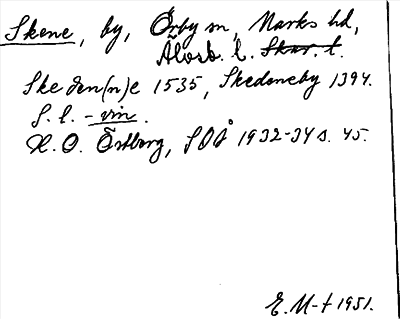 Skene, by, Örby sn, Marks hd,
Älvsb. l. Skar. l.
Skeden(n)e 1535, Skedoneby 1394.
S. l. -vin.
K. O. Östberg, SOÅ 1932-34 s. 45.
E. M-t 1951.